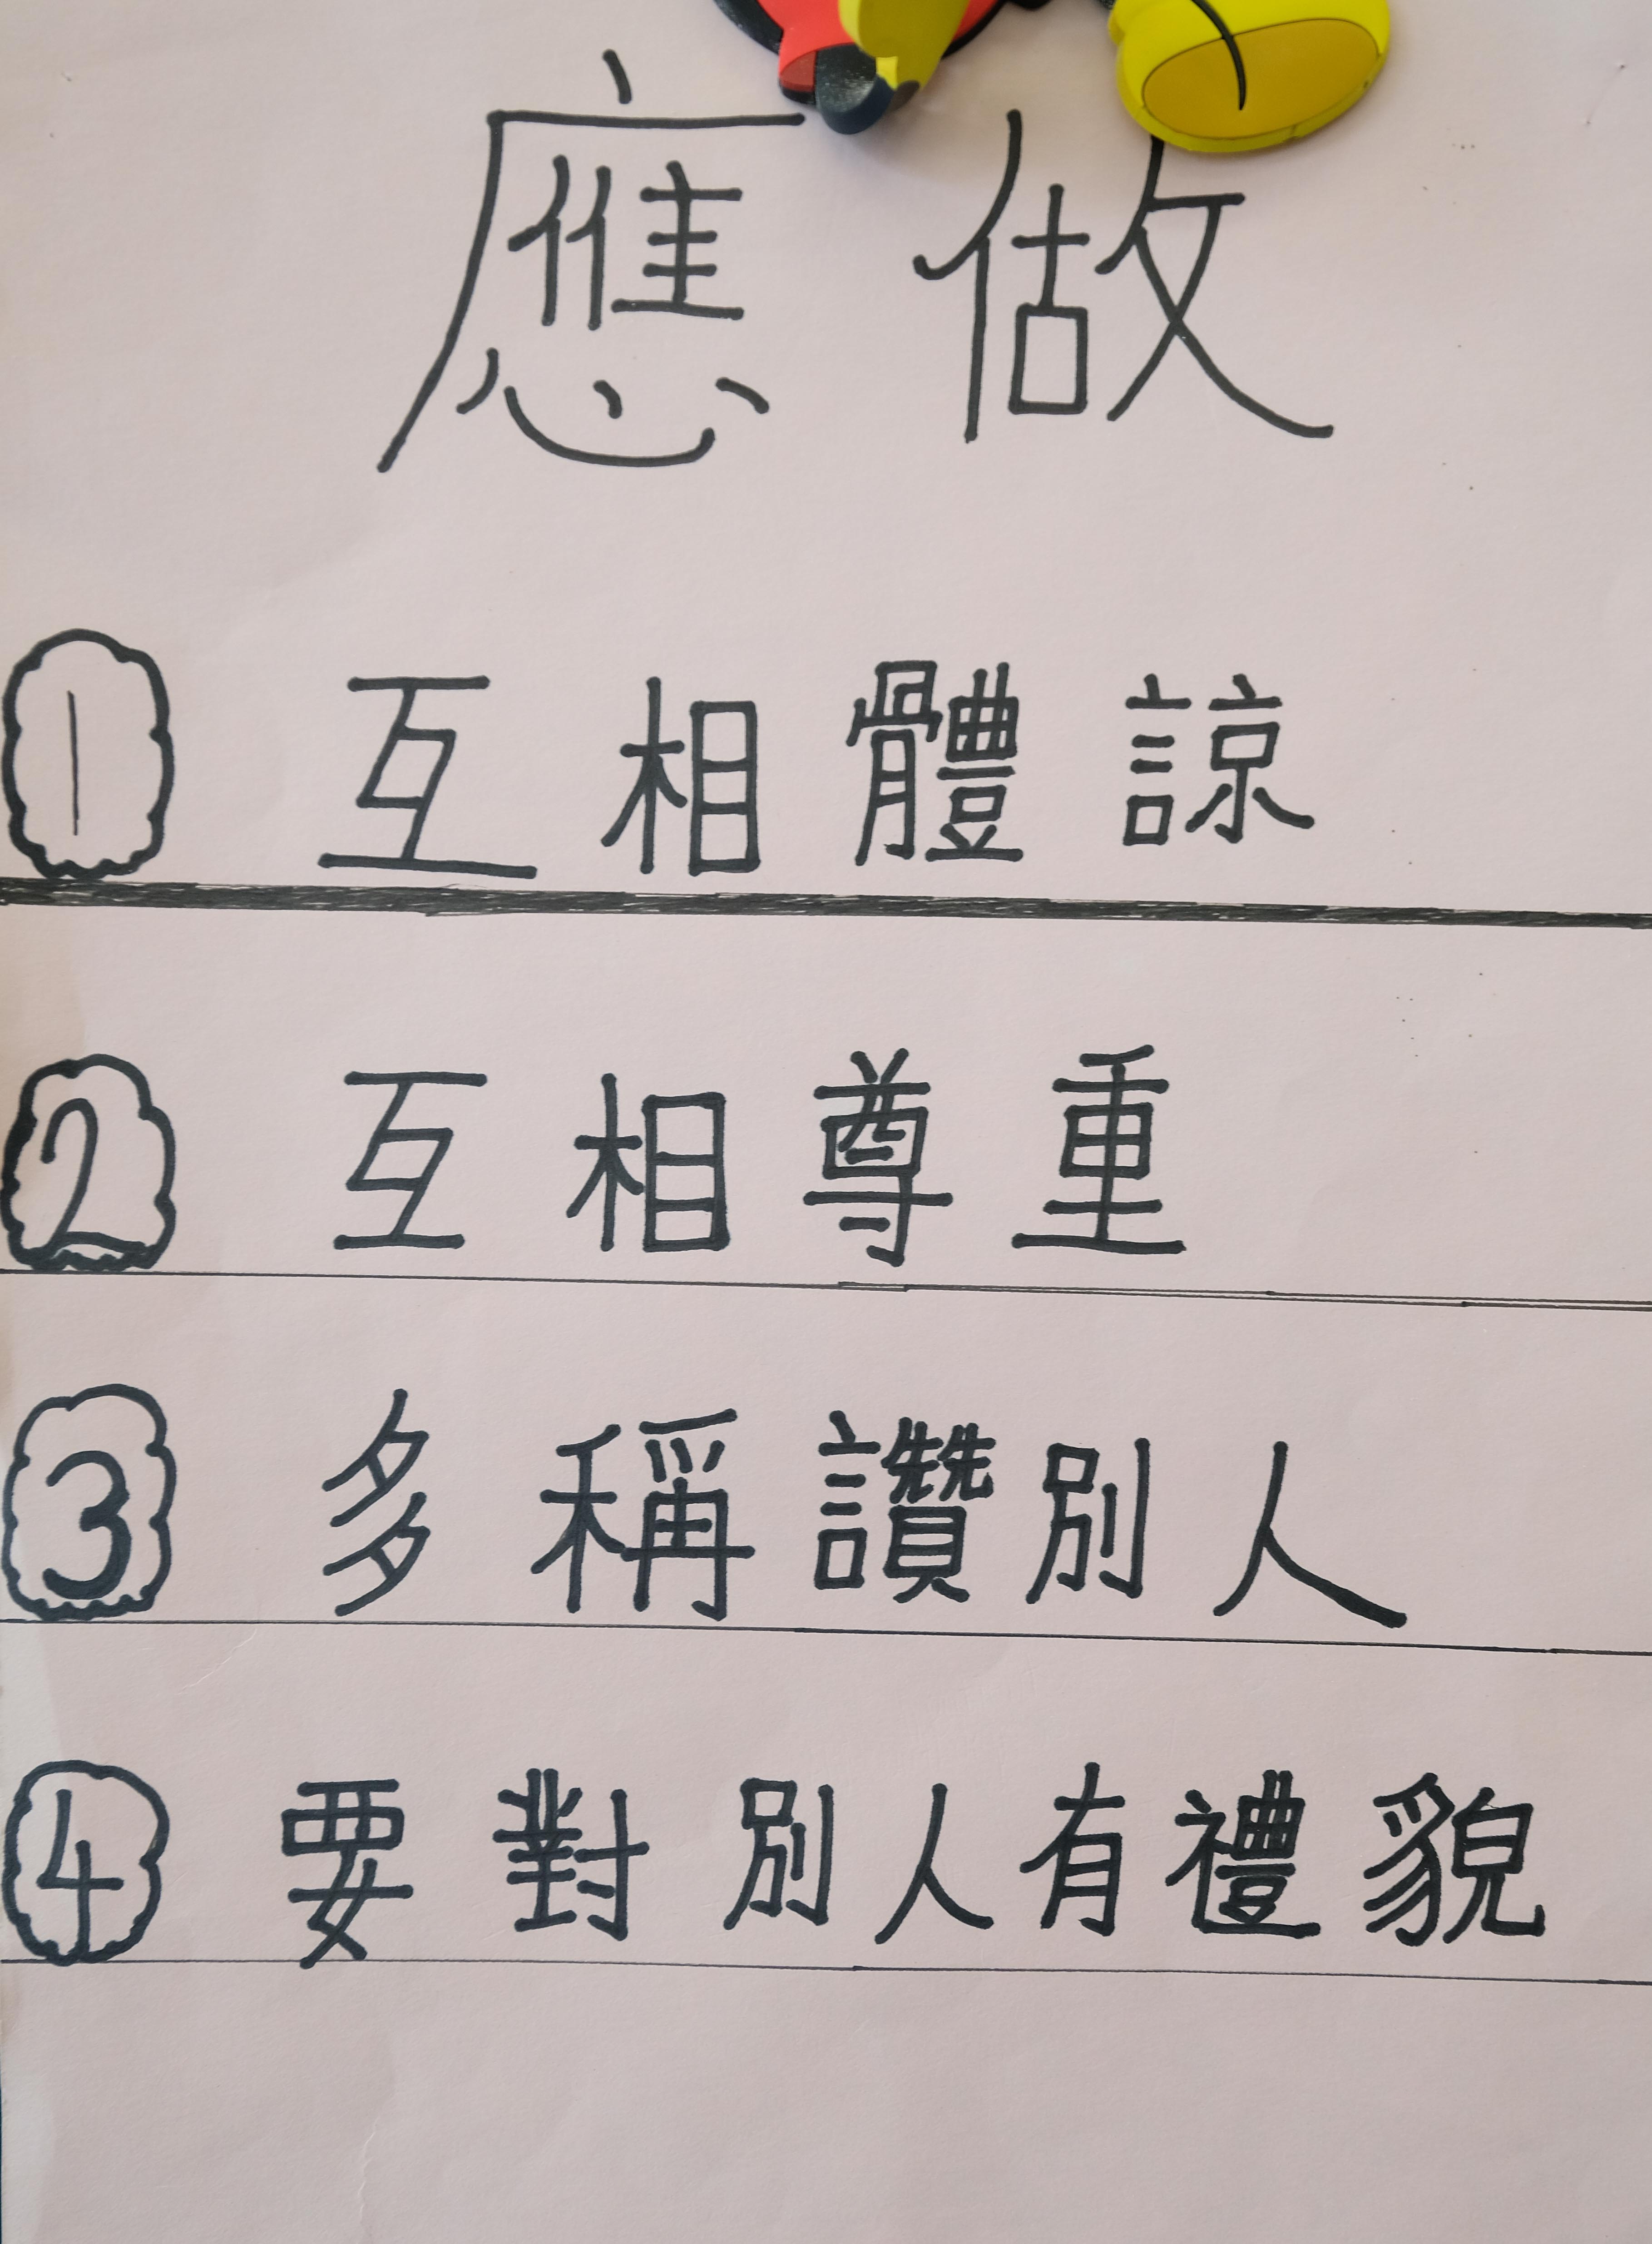 應做
1 互相體諒
2 互相尊重
3 多稱讚別人
4 要對別人有禮貌